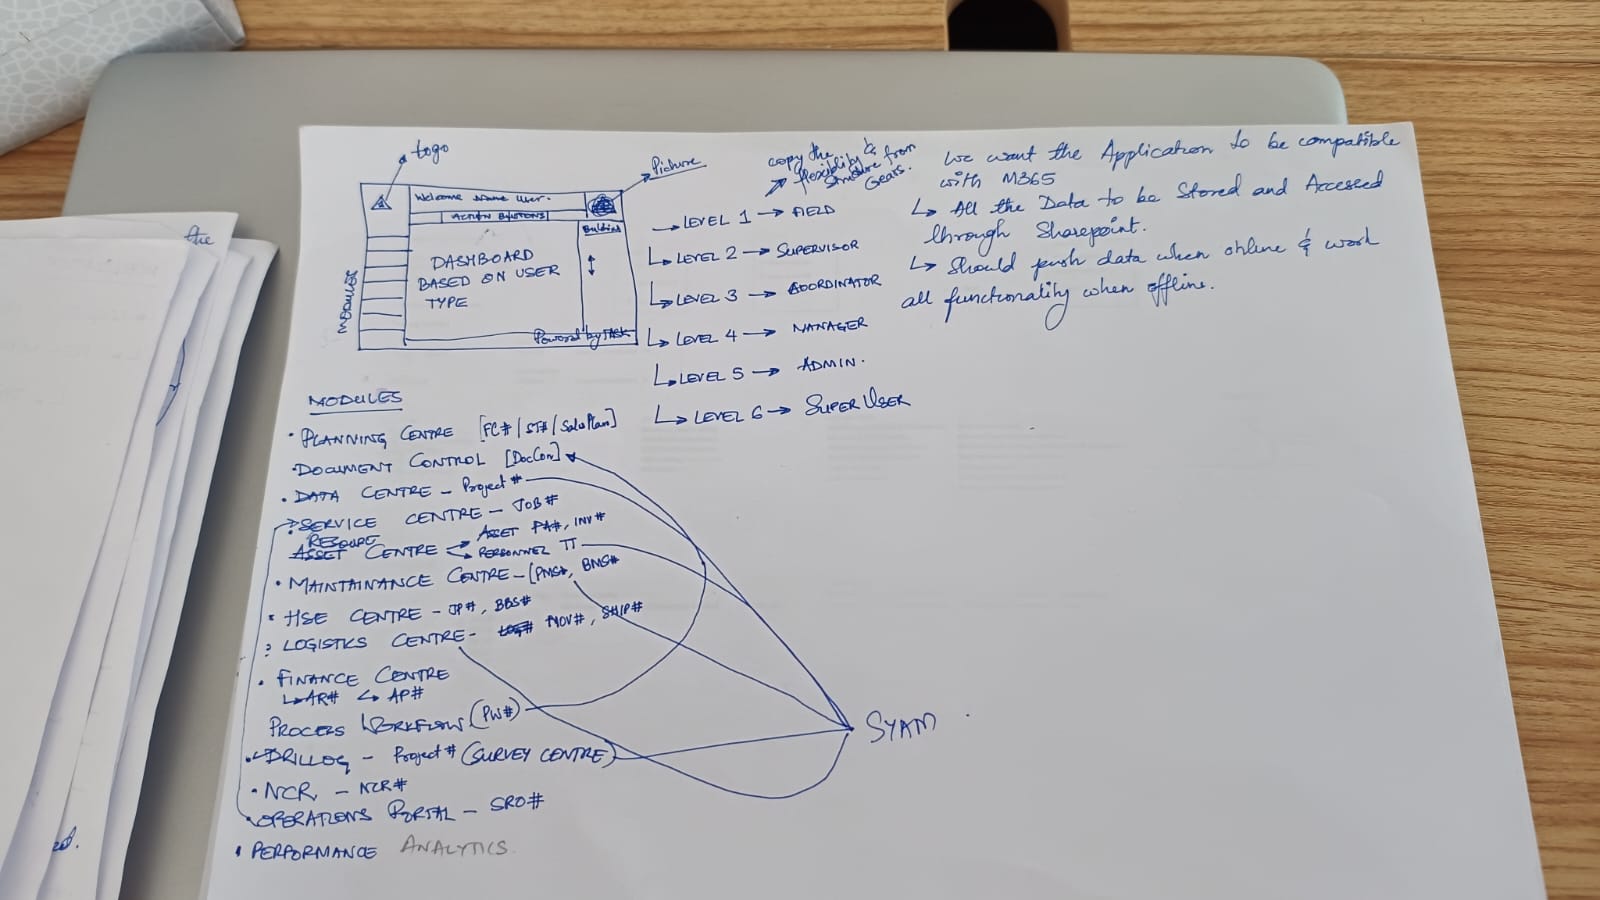 logo
Picture
Welcome Name User.
ACTION BUTTONS
Bulletin
MODULES
DASHBOARD
BASED ON USER
TYPE
Powered by
copy the
flexibility &
structure from
Gears.
LEVEL 1 → FIELD
LEVEL 2 → SUPERVISOR
LEVEL 3 → COORDINATOR
LEVEL 4 → MANAGER
LEVEL 5 → ADMIN.
LEVEL 6 → SUPER USER
We want the Application to be compatible
with M365
↳ All the Data to be Stored and Accessed
through Sharepoint.
↳ Should push data when online & work
all functionality when offline.
the
MODULES
• PLANNING CENTRE [FC# / ST# / SalesPlan]
• DOCUMENT CONTROL [DocCon]
• DATA CENTRE - Project #
SERVICE CENTRE - JOB #
ASSET CENTRE → ASSET PA#, INV#
→ PERSONNEL TT
• MAINTAINANCE CENTRE - [PMS#, BMS#
• HSE CENTRE - JP#, BBS#
? LOGISTICS CENTRE - MOV#, SHIP#
• FINANCE CENTRE
↳ AR# ↳ AP#
PROCESS WORKFLOW (PW#)
• DRILLOG - Project # (SURVEY CENTRE)
• NCR - NCR#
• OPERATIONS PORTAL - SRO#
• PERFORMANCE ANALYTICS.
SYAM